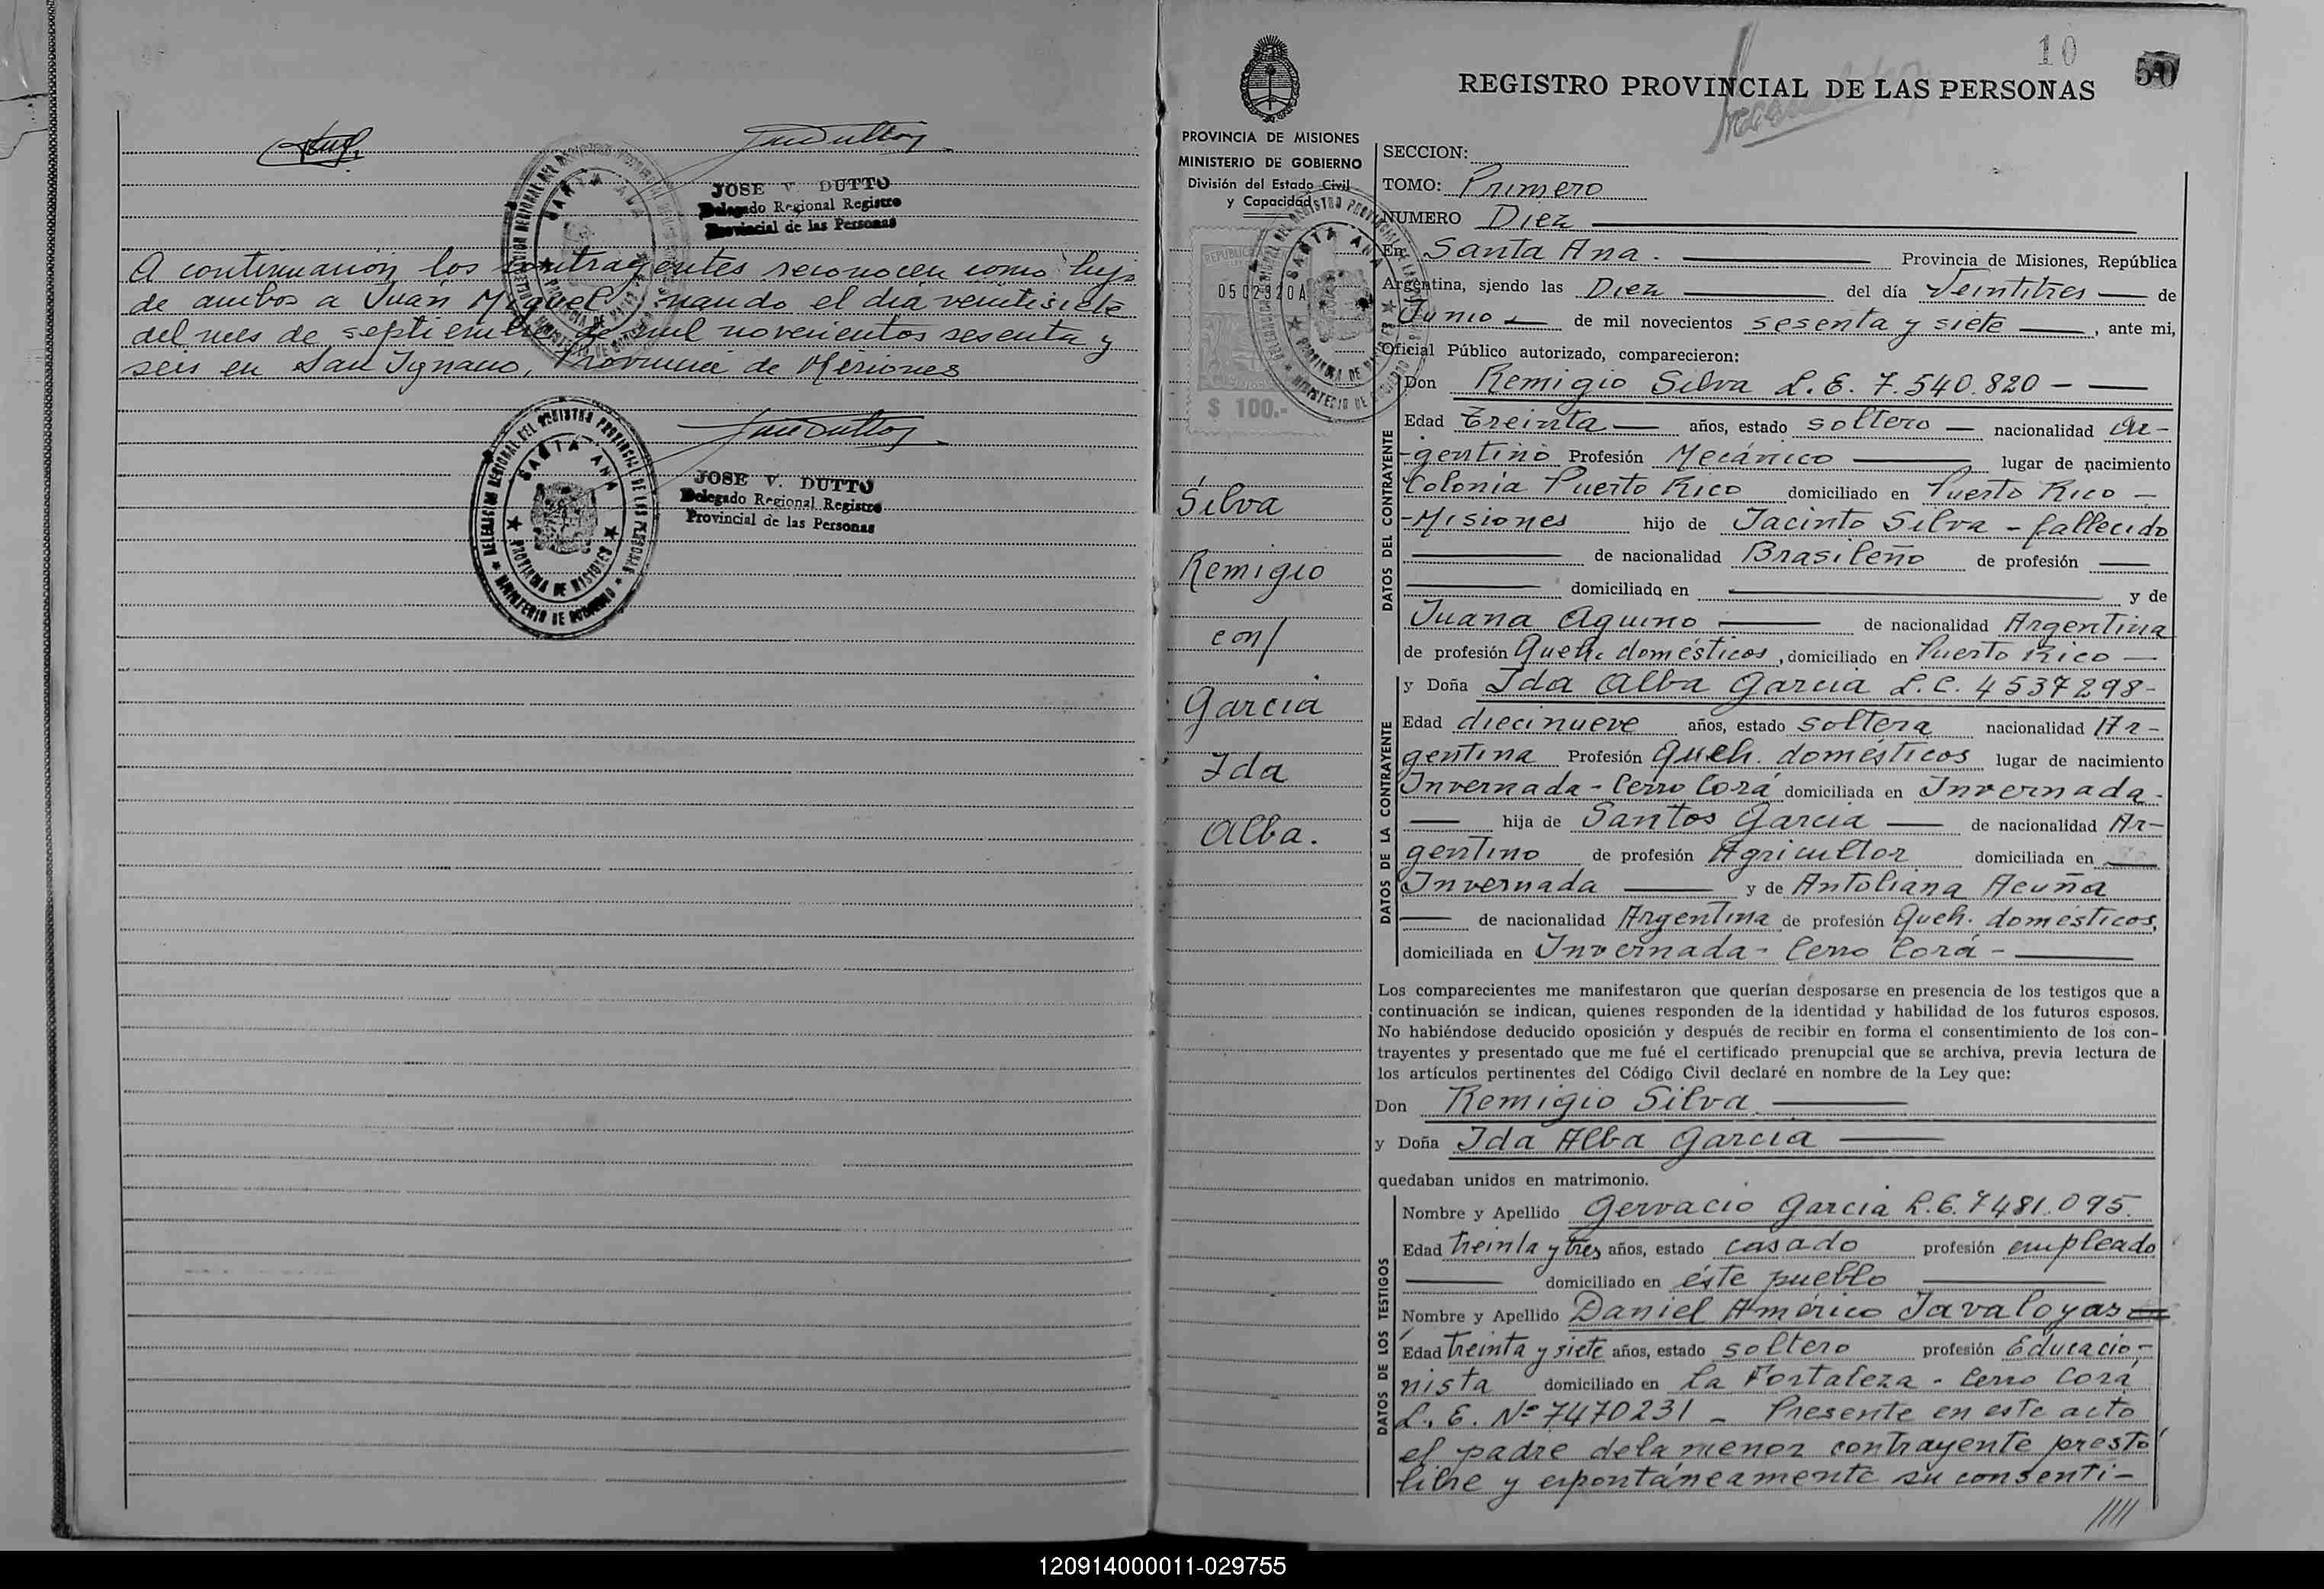 JOSE V. DUTTO
Delegado Regional Registro
Provincial de las Personas
A continuación los contrayentes reconocen como hijo
de ambos a Juan Miguel, nacido el día veintisiete
del mes de septiembre de mil novecientos sesenta y
seis en San Ignacio, Provincia de Misiones
DELEGACION REGIONAL DEL REGISTRO PROVINCIAL DE LAS PERSONAS
SANTA ANA
PROVINCIA DE MISIONES
MINISTERIO DE GOBIERNO
JOSE V. DUTTO
Delegado Regional Registro
Provincial de las Personas
10
50
REGISTRO PROVINCIAL DE LAS PERSONAS
PROVINCIA DE MISIONES
MINISTERIO DE GOBIERNO
División del Estado Civil
y Capacidad
0502320A
$ 100.-
Silva
Remigio
con/
Garcia
Ida
Alba.
SECCION:
TOMO: Primero
NUMERO Diez
En Santa Ana. Provincia de Misiones, República
Argentina, siendo las Diez del día Veintitres de
Junio de mil novecientos sesenta y siete, ante mi,
Oficial Público autorizado, comparecieron:
DATOS DEL CONTRAYENTE
Don Remigio Silva L.E. 7.540.820 -
Edad treinta años, estado soltero nacionalidad Ar-
gentino Profesión Mecánico lugar de nacimiento
Colonia Puerto Rico domiciliado en Puerto Rico -
-Misiones hijo de Jacinto Silva - fallecido
de nacionalidad Brasileño de profesión
domiciliado en y de
Juana Aquino de nacionalidad Argentina
de profesión Queh. domésticos, domiciliado en Puerto Rico
DATOS DE LA CONTRAYENTE
y Doña Ida Alba Garcia L.C. 4537298-
Edad diecinueve años, estado soltera nacionalidad Ar-
gentina Profesión Queh. domésticos lugar de nacimiento
Invernada - Cerro Corá domiciliada en Invernada-
hija de Santos Garcia de nacionalidad Ar-
gentino de profesión Agricultor domiciliada en
Invernada y de Antoliana Acuña
de nacionalidad Argentina de profesión Queh. domésticos,
domiciliada en Invernada - Cerro Corá -
Los comparecientes me manifestaron que querían desposarse en presencia de los testigos que a
continuación se indican, quienes responden de la identidad y habilidad de los futuros esposos.
No habiéndose deducido oposición y después de recibir en forma el consentimiento de los con-
trayentes y presentado que me fué el certificado prenupcial que se archiva, previa lectura de
los artículos pertinentes del Código Civil declaré en nombre de la Ley que:
Don Remigio Silva
y Doña Ida Alba Garcia
quedaban unidos en matrimonio.
DATOS DE LOS TESTIGOS
Nombre y Apellido Gervacio Garcia L.E. 7481.095.
Edad treinta y tres años, estado casado profesión empleado
domiciliado en éste pueblo
Nombre y Apellido Daniel Américo Javaloyas
Edad treinta y siete años, estado soltero profesión Educacio-
nista domiciliado en La Fortaleza - Cerro Corá
L.E. Nº 7470231 - Presente en este acto
el padre de la menor contrayente prestó
libre y espontáneamente su consenti-
////
120914000011-029755